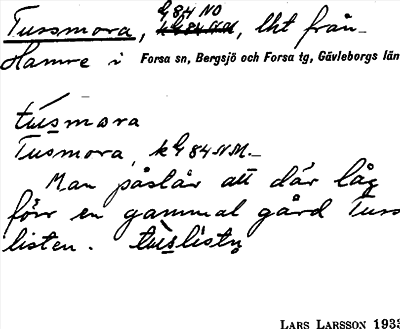 Tussmora, G 84 NO, lht från
Hamre i Forsa sn, Bergsjö och Forsa tg, Gävleborgs län
tùsmora
Tusmora, kG 84 N.M.
Man påstår att där låg
förr en gammal gård Tuss
listen. tùslistn̥
LARS LARSSON 1933